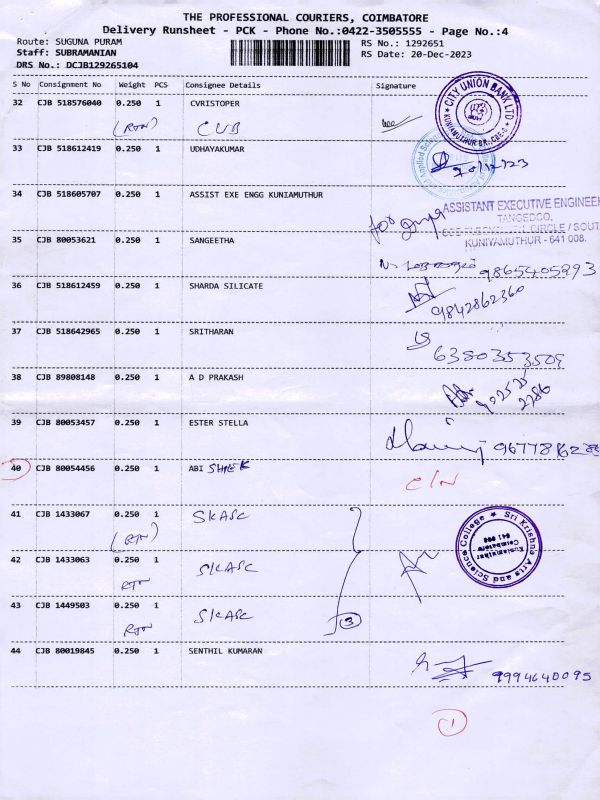 THE PROFESSIONAL COURIERS, COIMBATORE
Delivery Runsheet - PCK - Phone No.:0422-3505555 - Page No.:4
Route: SUGUNA PURAM RS No.: 1292651
Staff: SUBRAMANIAN RS Date: 20-Dec-2023
DRS No.: DCJB129265104
S No Consignment No Weight PCS Consignee Details Signature
32 CJB 518576040 0.250 1 CVRISTOPER
(RTN) CUB
CITY UNION BANK LTD.
KUNIAMUTHUR BR., CBE-8
33 CJB 518612419 0.250 1 UDHAYAKUMAR
20/12/23
34 CJB 518605707 0.250 1 ASSIST EXE ENGG KUNIAMUTHUR
for
ASSISTANT EXECUTIVE ENGINEER
TANGEDCO,
CIRCLE / SOUTH
KUNIYAMUTHUR - 641 008.
35 CJB 80053621 0.250 1 SANGEETHA
9865405293
36 CJB 518612459 0.250 1 SHARDA SILICATE
9842862360
37 CJB 518642965 0.250 1 SRITHARAN
6380353509
38 CJB 89808148 0.250 1 A D PRAKASH
39 CJB 80053457 0.250 1 ESTER STELLA
40 CJB 80054456 0.250 1 ABI SHREK
C/N
41 CJB 1433067 0.250 1 SKASC
(RTN)
42 CJB 1433063 0.250 1 SKASC
RTN
43 CJB 1449503 0.250 1 SKASC
RTN
3
Sri Krishna Arts and Science College
Kuniamuthur
Coimbatore
641 008
44 CJB 80019845 0.250 1 SENTHIL KUMARAN
9994640095
1